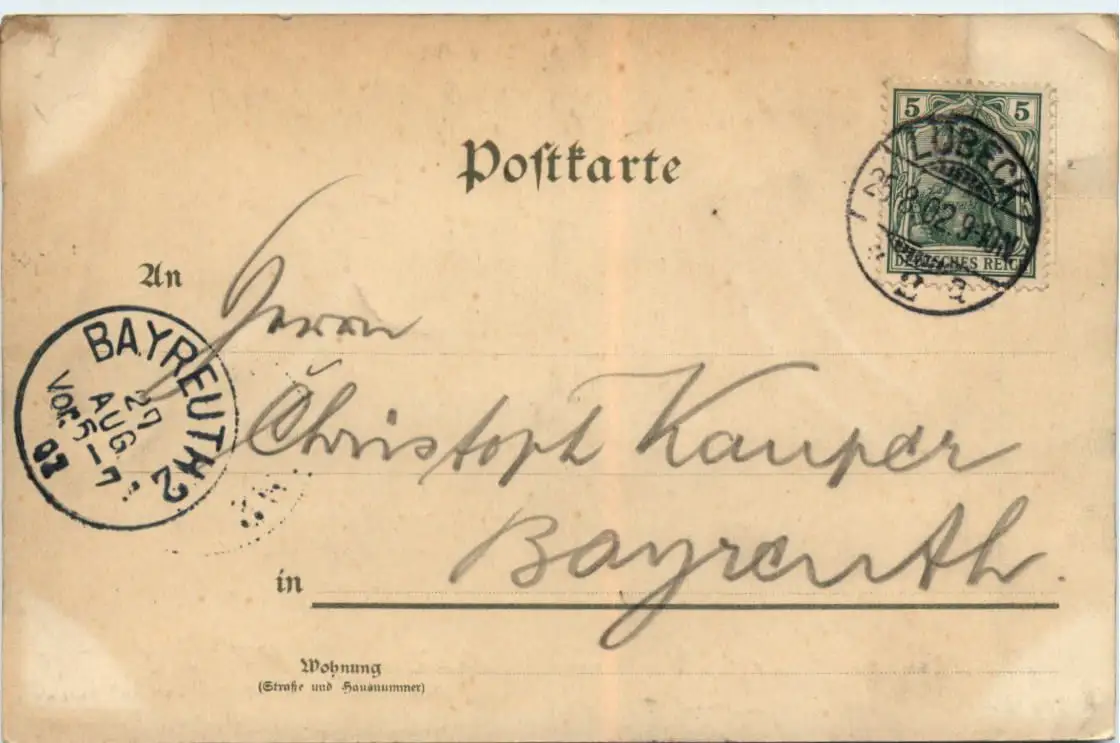 Postkarte
5 5
DEUTSCHES REICH
LÜBECK
25.8.02. 9-10N.
2 a
An
Herrn
Christoph Kauper
Bayreuth.
in
BAYREUTH 2
27
AUG
Vor. 5-7
02
Wohnung
(Straße und Hausnummer)